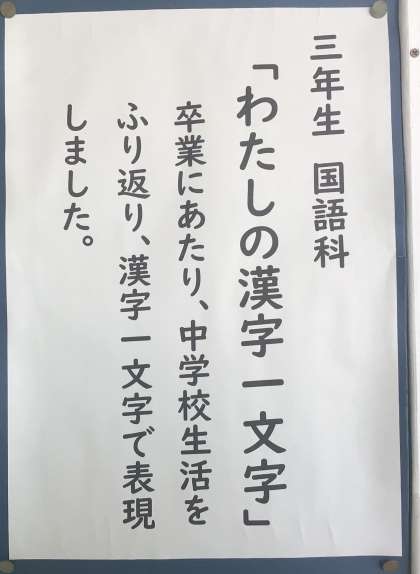 三年生　国語科
「わたしの漢字一文字」
卒業にあたり、中学校生活を
ふり返り、漢字一文字で表現
しました。